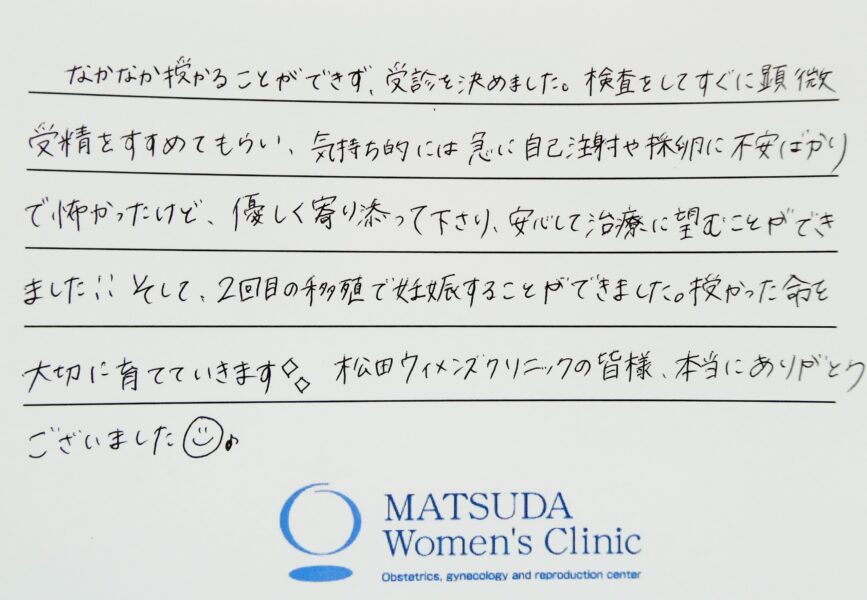 なかなか授かることができず、受診を決めました。検査をしてすぐに顕微
受精をすすめてもらい、気持ち的には急に自己注射や採卵に不安ばかり
で怖かったけど、優しく寄り添って下さり、安心して治療に望むことができ
ました!! そして、2回目の移殖で妊娠することができました。授かった命を
大切に育てていきます◇◇ 松田ウィメンズクリニックの皆様、本当にありがとう
ございました☺♪
MATSUDA
Women's Clinic
Obstetrics, gynecology and reproduction center